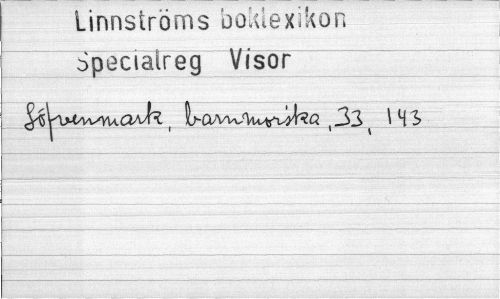 Linnströms boklexikon
Specialreg Visor
Söfvenmark, barnmorska, 33, 143